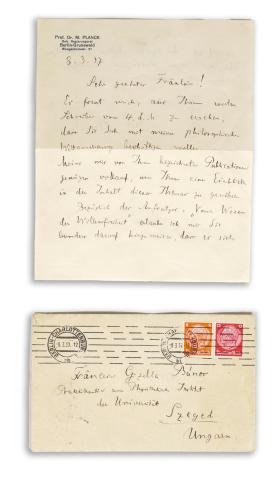 Prof. Dr. M. PLANCK
Berlin-Grunewald
Wangenheimstr. 21
8.3.37
Sehr geehrtes Fräulein!
Es freut mich, aus Ihrem werten
Schreiben vom 4. d. M. zu ersehen,
dass Sie sich mit meiner philosophischen
beschäftigen wollen.
Meine mir von Ihnen bezeichneten Publikationen
genügen vollauf, um Ihnen einen Einblick
in den Inhalt dieser zu gewähren.
Bezüglich des Aufsatzes: "Vom Wesen
der Willensfreiheit" erlaube ich mir Sie
besonders darauf hinzuweisen, dass er sich
BERLIN-CHARLOTTENBURG
9.3.37.12
Fräulein Gizella
Institut
der Universität
Szeged
Ungarn